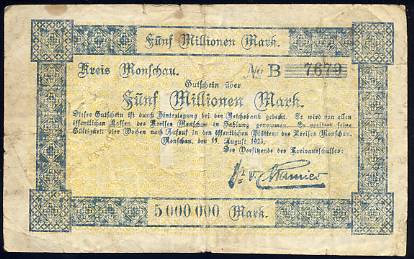 Fünf Millionen Mark.
Kreis Monschau. No B 7679
Gutschein über
Fünf Millionen Mark.
Dieser Gutschein ist durch Hinterlegung bei der Reichsbank gedeckt. Er wird von allen
öffentlichen Kassen des Kreises Monschau in Zahlung genommen. Er verliert seine
Gültigkeit vier Wochen nach Aufruf in den öffentlichen Blättern des Kreises Monschau.
Monschau, den 11. August 1923.
Der Vorsitzende des Kreisausschusses:
5 000 000 Mark.